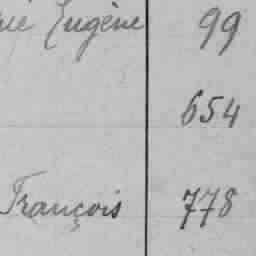 Eugène 99
654
François 778